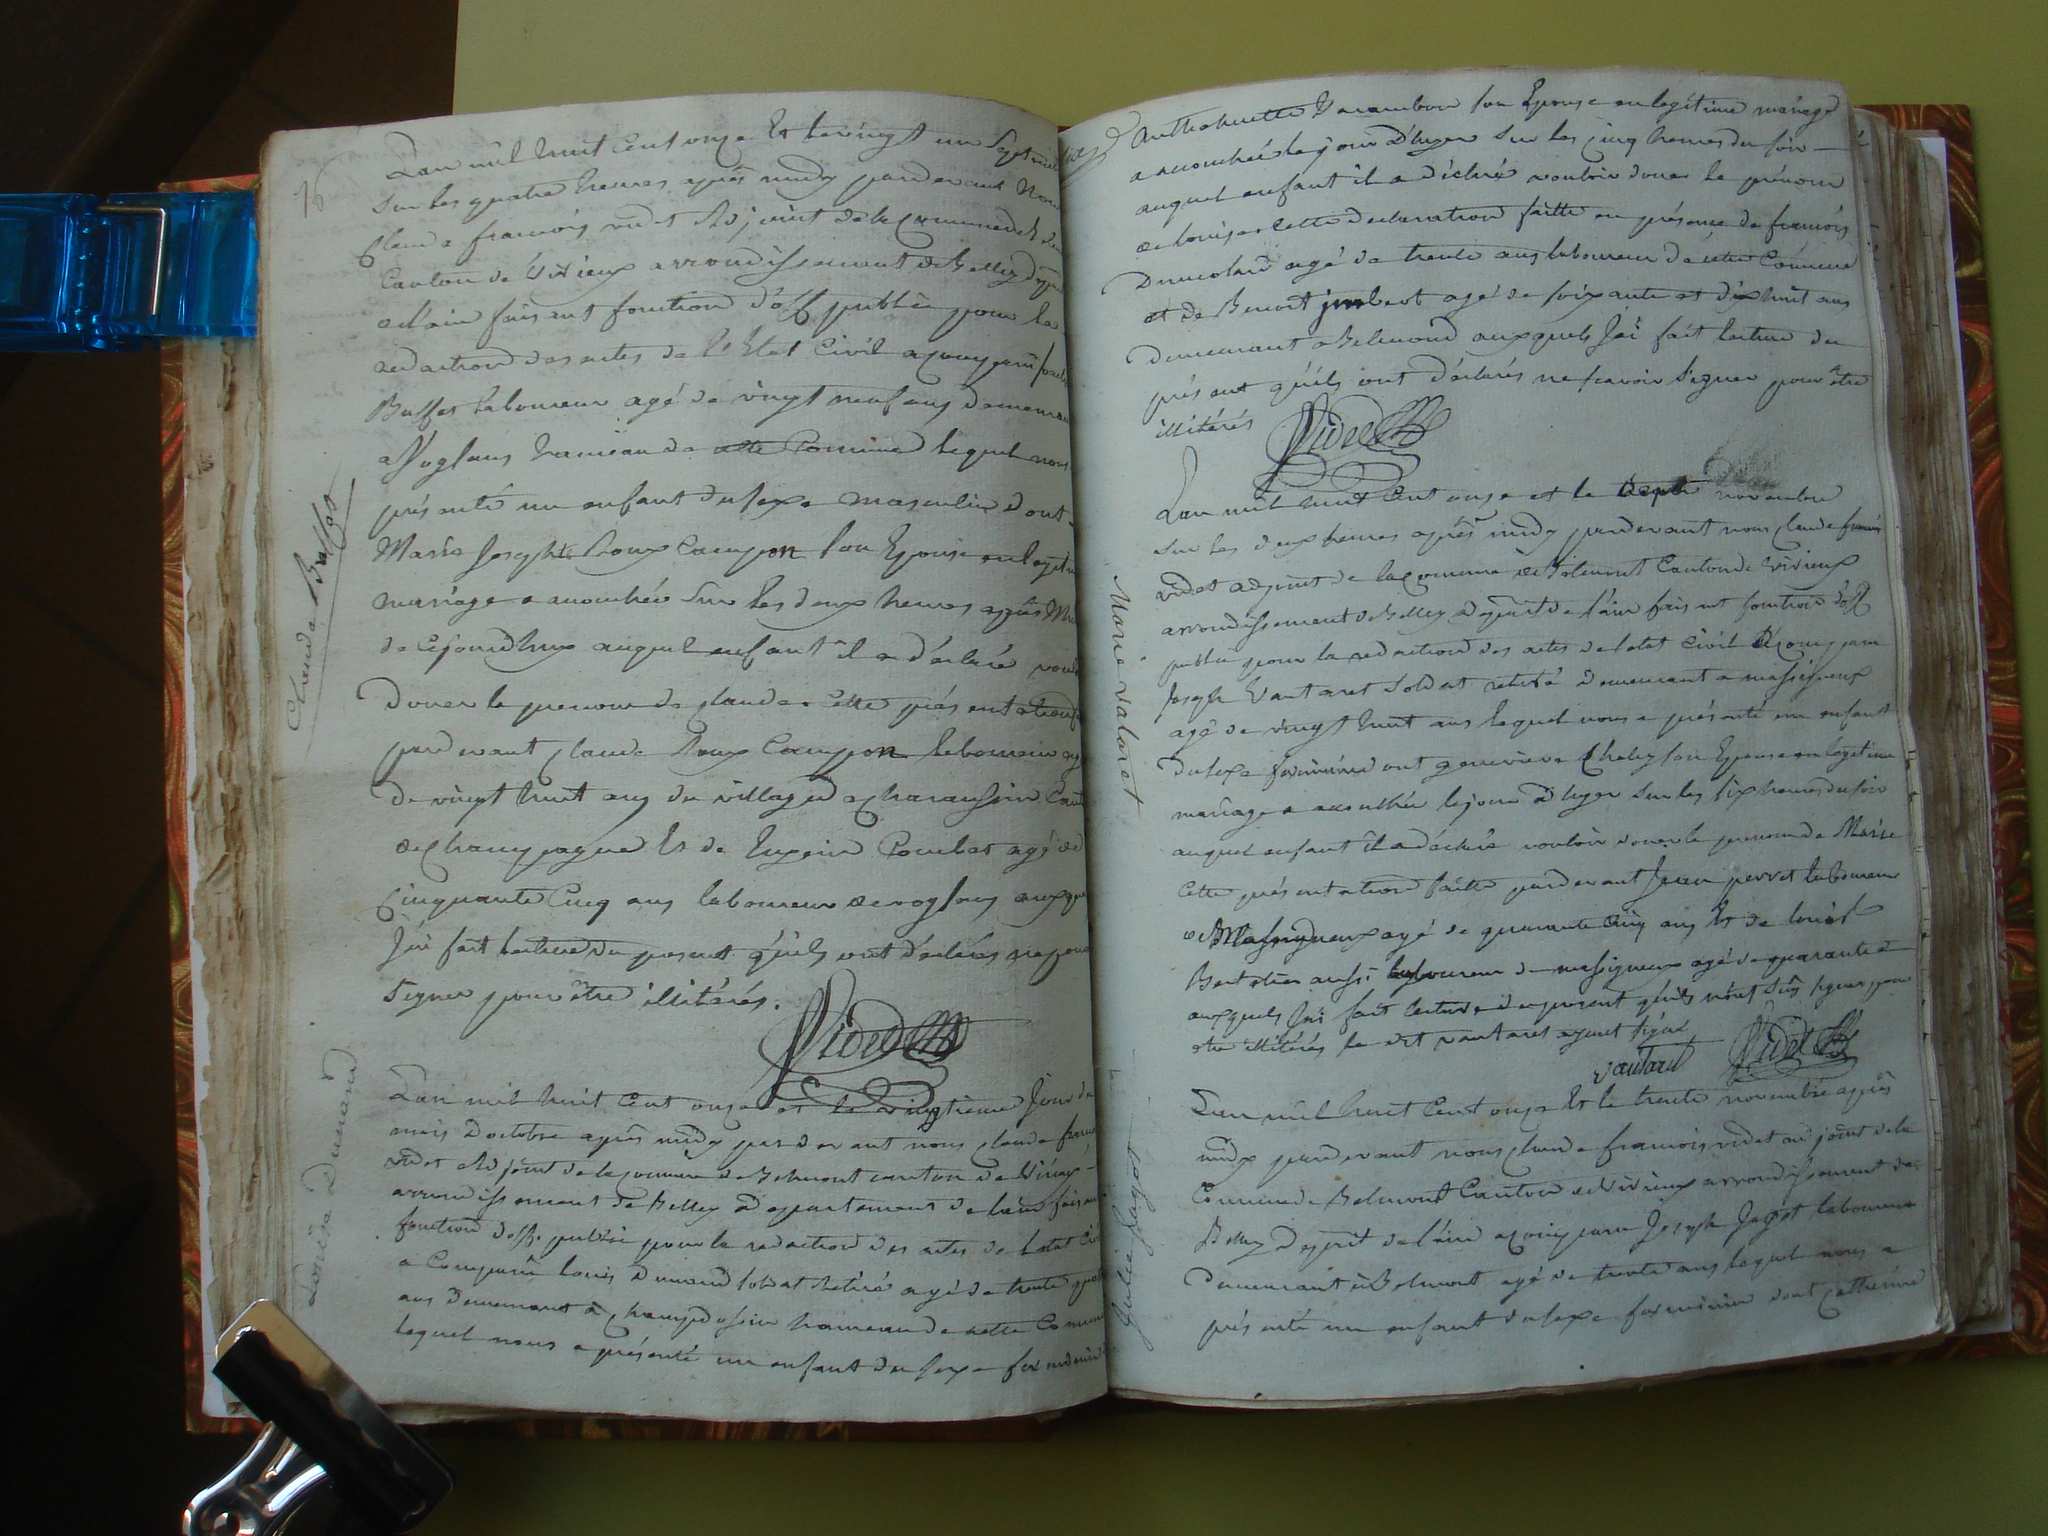 Lan mil huit Cent onze Et le vingt un Septembre
sur les quatre heures après midy pardevant Nous
Claude francois videt Adjoint de la Commune de
Canton de Virieux arrondissement de Belley
de lain faisant fonction d'off public pour la
redaction des actes de l'Etat Civil a comparu
Buffet laboureur agé de vingt neuf ans demeurant
hameau de cette Comune lequel nous
présenté un enfant du sexe masculin dont
Marie Josephte Roux Campon son Epouse en legitime
mariage a accouchée sur les deux heures après Midi
de cejourdhuy auquel enfant il a déclaré vouloir
doner le prenom de Claude cette présentation
pardevant Claude Roux Campon laboureur agé
de vingt huit ans du village de
de Champagne Et de Combet agé de
Cinquante Cinq ans laboureur auxquels
J'ai fait lecture du present qu'ils ont déclarés
signer pour être illitérés.
Videt
Claude Buffet
Lan mil huit Cent onze et le vingtieme Jour du
mois d'octobre après midy pardevant nous Claude francois
videt Adjoint de la Comune de Belmont canton de Virieux
arrondissement de Belley Departement de lain faisant
fonction d'off. public pour la redaction des actes de l'état Civil
a Comparu Louis Dumard soldat Retiré agé de trente quatre
ans demeurant à hameau de cette Comune
lequel nous a présenté un enfant du sexe feminin
Louise Dumard
Anthoinette son Epouse en legitime mariage
a accouchée le jour D'hyer sur les Cinq heures du soir
auquel enfant il a déclaré vouloir doner le prénom
de louise cette declaration faitte en présence de francois
agé de trente ans laboureur de cette Comune
et de Benoit jmbert agé de soixante et dix huit ans
demeurant a Belmond auxquels J'ai fait lecture du
présent qu'ils ont déclarés ne scavoir signer pour être
illitérés
Videt
Lan mil huit Cent onze et le novembre
sur les deux heures après midy pardevant nous Claude francois
videt adjoint de la Comune de Belmont Canton de Virieux
arrondissement de Belley Depart de l'ain faisant fonction d'off
public pour la redaction des actes de letat Civil A Comparu
Joseph Vantaret soldat retiré demeurant a massigneux
agé de vingt huit ans lequel nous a présenté un enfant
du sexe feminin dont genevieve Chaley son Epouse en legitime
mariage a accouchée le jour d'hyer sur les six heures du soir
auquel enfant il a déclaré vouloir doner le prenom de Marie
Cette présentation faitte pardevant Jean perret laboureur
de Massigneux agé de quarante cinq ans Et de louis
aussi laboureur de massigneux agé de quarante
auxquels J'ai fait lecture du present qu'ils n'ont sû signer pour
etre illitérés le dit vantaret ayant signé
vantaret Videt
Marie valaret
Lan mil huit Cent onze Et le trente novembre après
midy pardevant nous Claude francois videt adjoint de la
Comune de Belmont Canton de Virieux arrondissement de
Belley Depart de l'ain a comparu Joseph Jagot laboureur
demeurant à Belmont agé de trente ans lequel nous a
présenté un enfant du sexe feminin dont Catherine
Julie Jagot